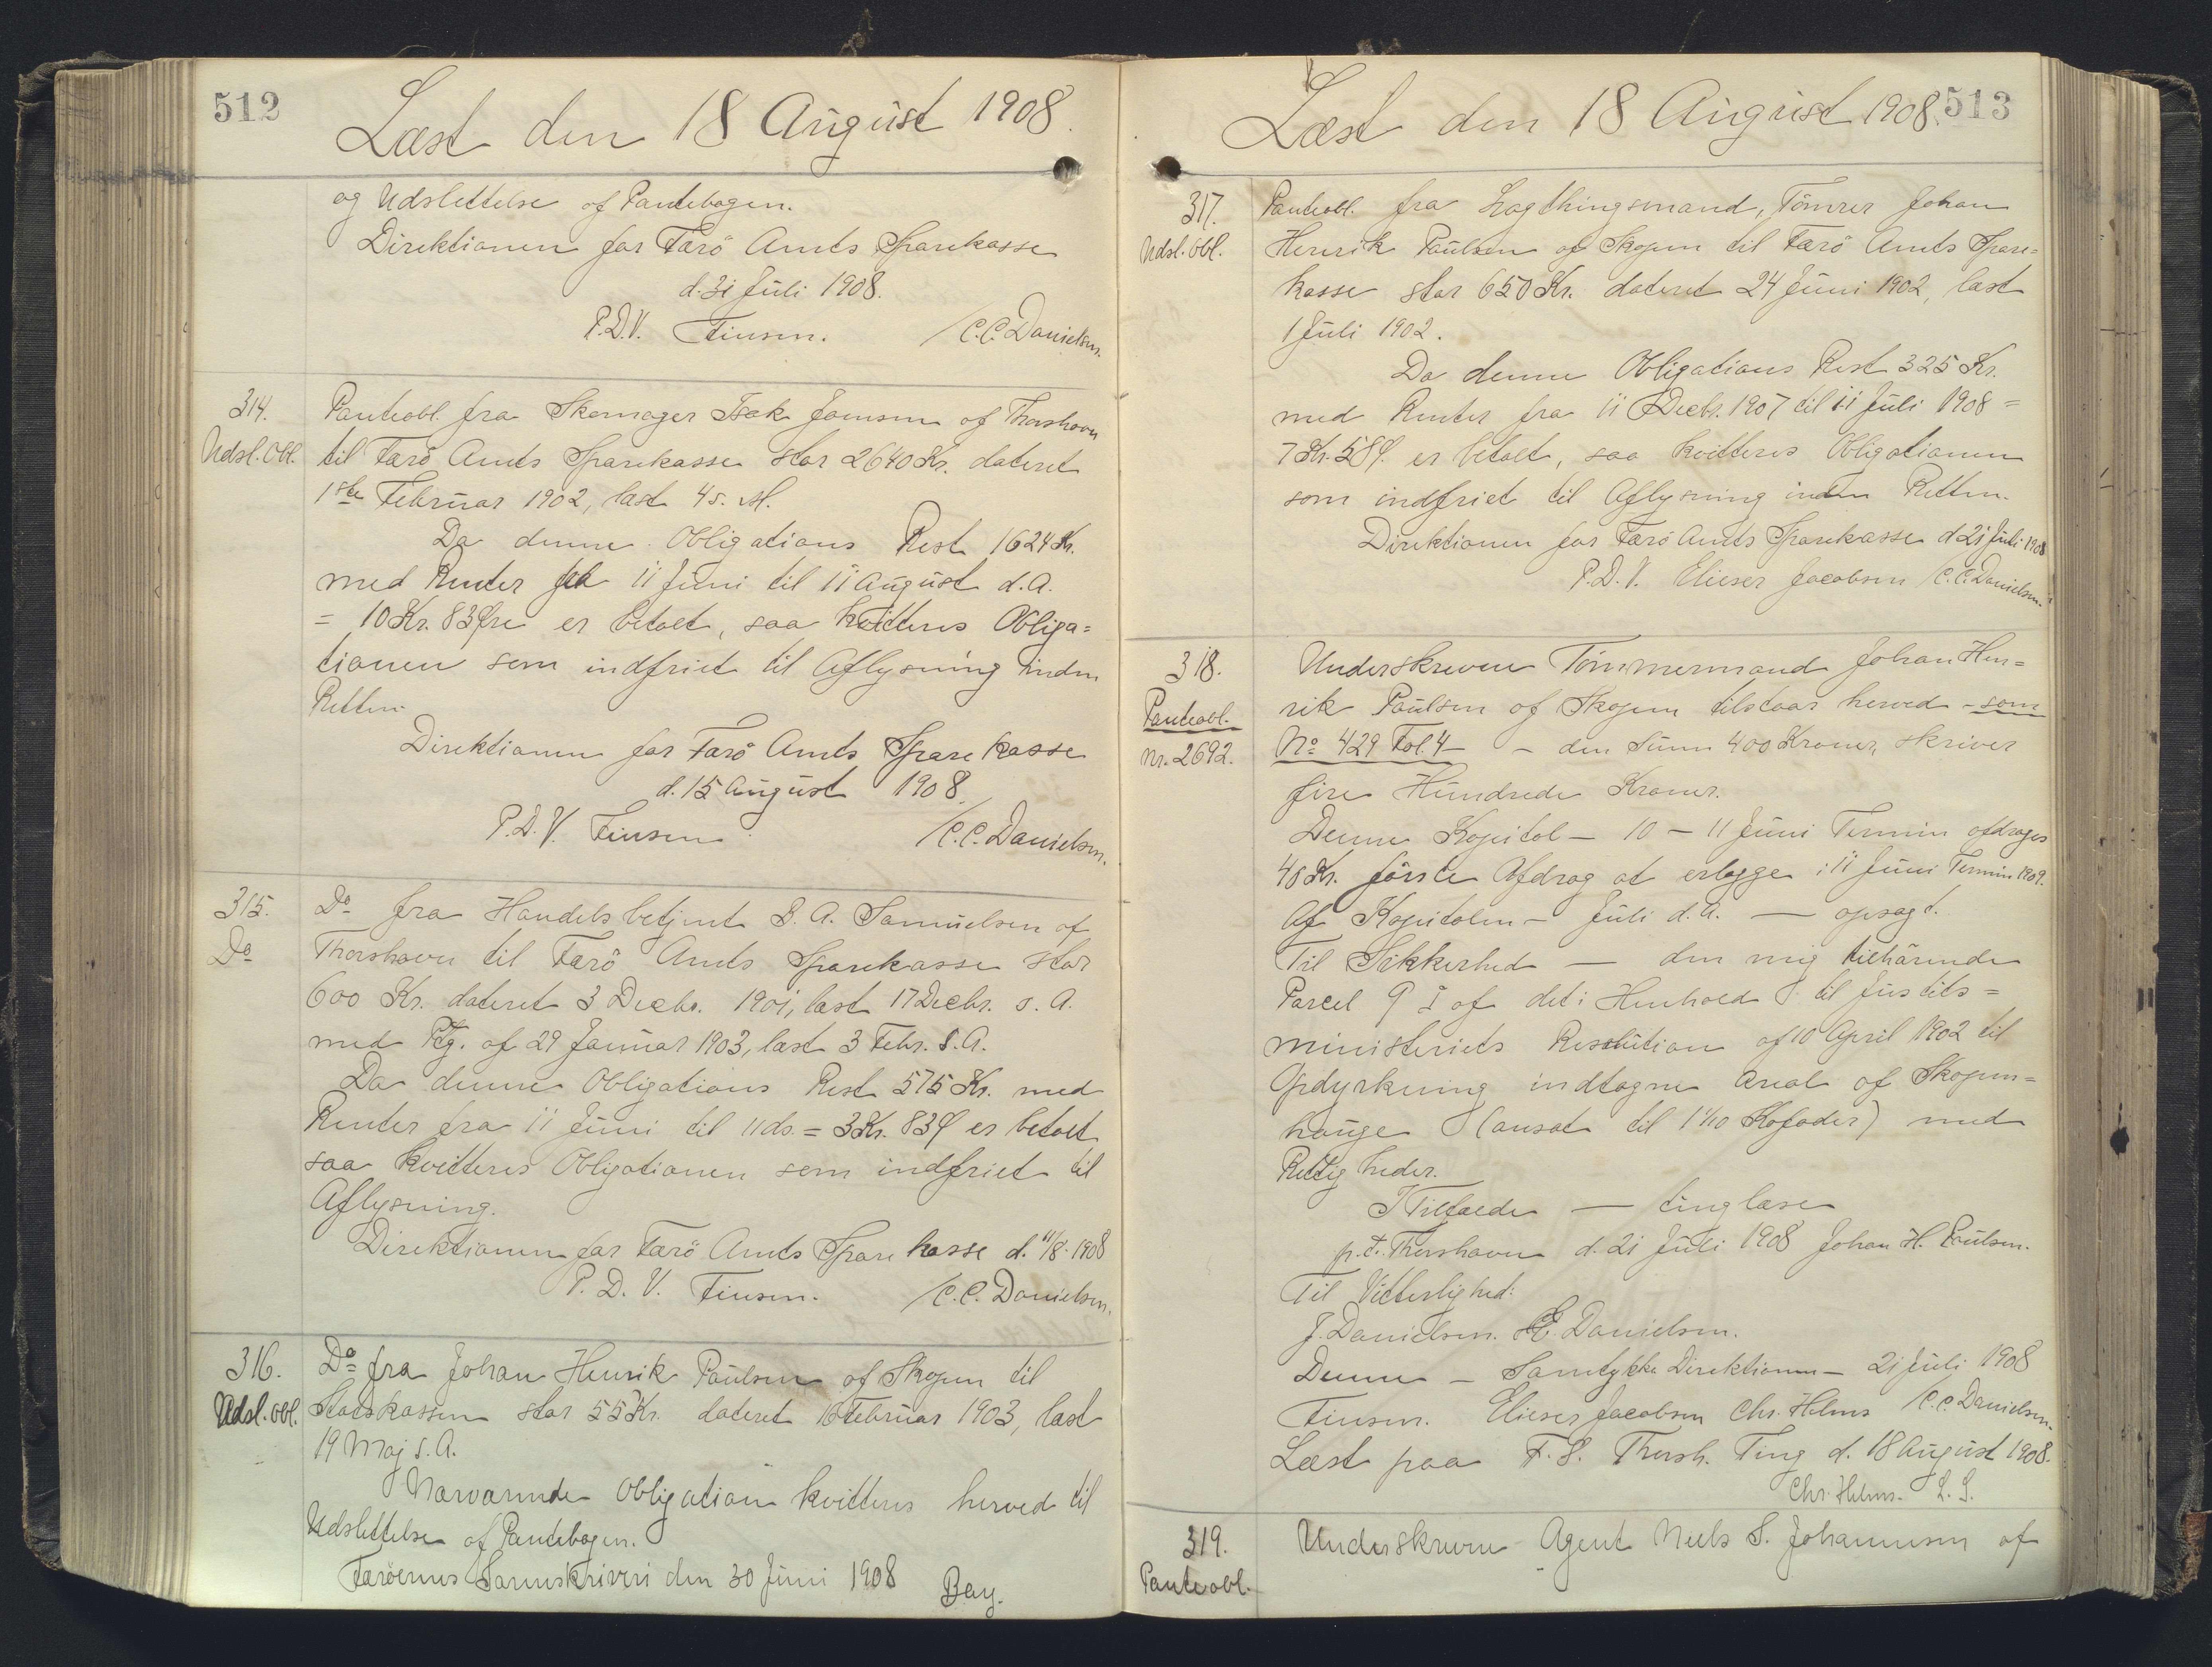 512
Læst den 18 August 1908.
og Udslettelse af Pantebogen.
Direktionen for Færö Amts Sparekasse
d. 31 Juli 1908.
P.D.V. Finsen. /C.C. Danielsen.
314.
Udsl. Obl.
Panteobl. fra Skomager Isak Joensen af Thorshavn
til Færö Amts Sparekasse stor 2640 Kr. dateret
1ste Februar 1902, læst 4 s. M.
Da denne Obligations Rest 1624 Kr.
med Renter fra 11 Juni til 11 August d. A.
= 10 Kr. 83 Øre er betalt, saa kvitteres Obliga=
tionen som indfriet til Aflysning inden
Retten.
Direktionen for Færö Amts Sparekasse
d. 15 August 1908.
P.D.V. Finsen /C.C. Danielsen.
315.
Do
Do fra Handelsbetjent S. A. Samuelsen af
Thorshavn til Færö Amts Sparekasse stor
600 Kr. dateret 3 Decbr. 1901, læst 17 Decbr. s. A.
med Ptg. af 29 Januar 1903, læst 3 Febr. s. A.
Da denne Obligations Rest 575 Kr. med
Renter fra 11 Juni til 11 ds. = 3 Kr. 83 Ø er betalt
saa kvitteres Obligationen som indfriet til
Aflysning.
Direktionen for Færö Amts Sparekasse d. 11/8 1908
P. D. V. Finsen. /C.C. Danielsen.
316.
Udsl. Obl.
Do fra Johan Henrik Paulsen af Skopun til
Statskassen stor 55 Kr. dateret 16 Februar 1903, læst
19 Maj s. A.
Nærværende Obligation kvitteres herved til
Udslettelse af Pantebogen.
Færöernes Sorenskriveri den 30 Juni 1908 Bay.
513
Læst den 18 August 1908.
317.
Udsl. Obl.
Panteobl. fra Lagthingsmand, Tömrer Johan
Henrik Paulsen af Skopun til Færö Amts Spare=
kasse stor 650 Kr. dateret 24 Juni 1902, læst
1 Juli 1902.
Da denne Obligations Rest 325 Kr.
med Renter fra 11 Decbr. 1907 til 11 Juli 1908 =
7 Kr. 58 Ø. er betalt, saa kvitteres Obligationen
som indfriet til Aflysning inden Retten.
Direktionen for Færö Amts Sparekasse d 21 Juli 1908
P. D. V. Elieser Jacobsen /C.C. Danielsen.
318.
Panteobl.
Nr. 2692.
Underskrevne Tömmermand Johan Hen=
rik Paulsen af Skopun tilstaar herved - som
No 429 Fol. 4 - - den Sum 400 Kroner, skriver
fire Hundrede Kroner.
Denne Kapital - 10 - 11 Juni Termin afdrages
40 Kr. förste Afdrag at erlægge i 11 Juni Termin 1909.
Af Kapitalen - Juli d. A. - opsagt.
Til Sikkerhed - den mig tilhörende
Parcel 9 I af det i Henhold til Justits=
ministeriets Resolution af 10 April 1902 til
Opdyrkning indtagne Areal af Skopun=
hauge (ansat til 1 1/10 Kofoder) med
Rettigheder.
I Tilfælde - tinglæse
p. t. Thorshavn d. 21 Juli 1908 Johan H. Paulsen.
Til Vitterlighed:
J. Danielsen. E. Danielsen.
Denne - Samtykke Direktionen - 21 Juli 1908
Finsen. Elieser Jacobsen Chr. Helms /C.C. Danielsen.
Læst paa F. S. Thorsh. Ting d. 18 August 1908.
Chr. Helms. L. S.
319.
Panteobl.
Underskrevne Agent Niels S. Johannesen af